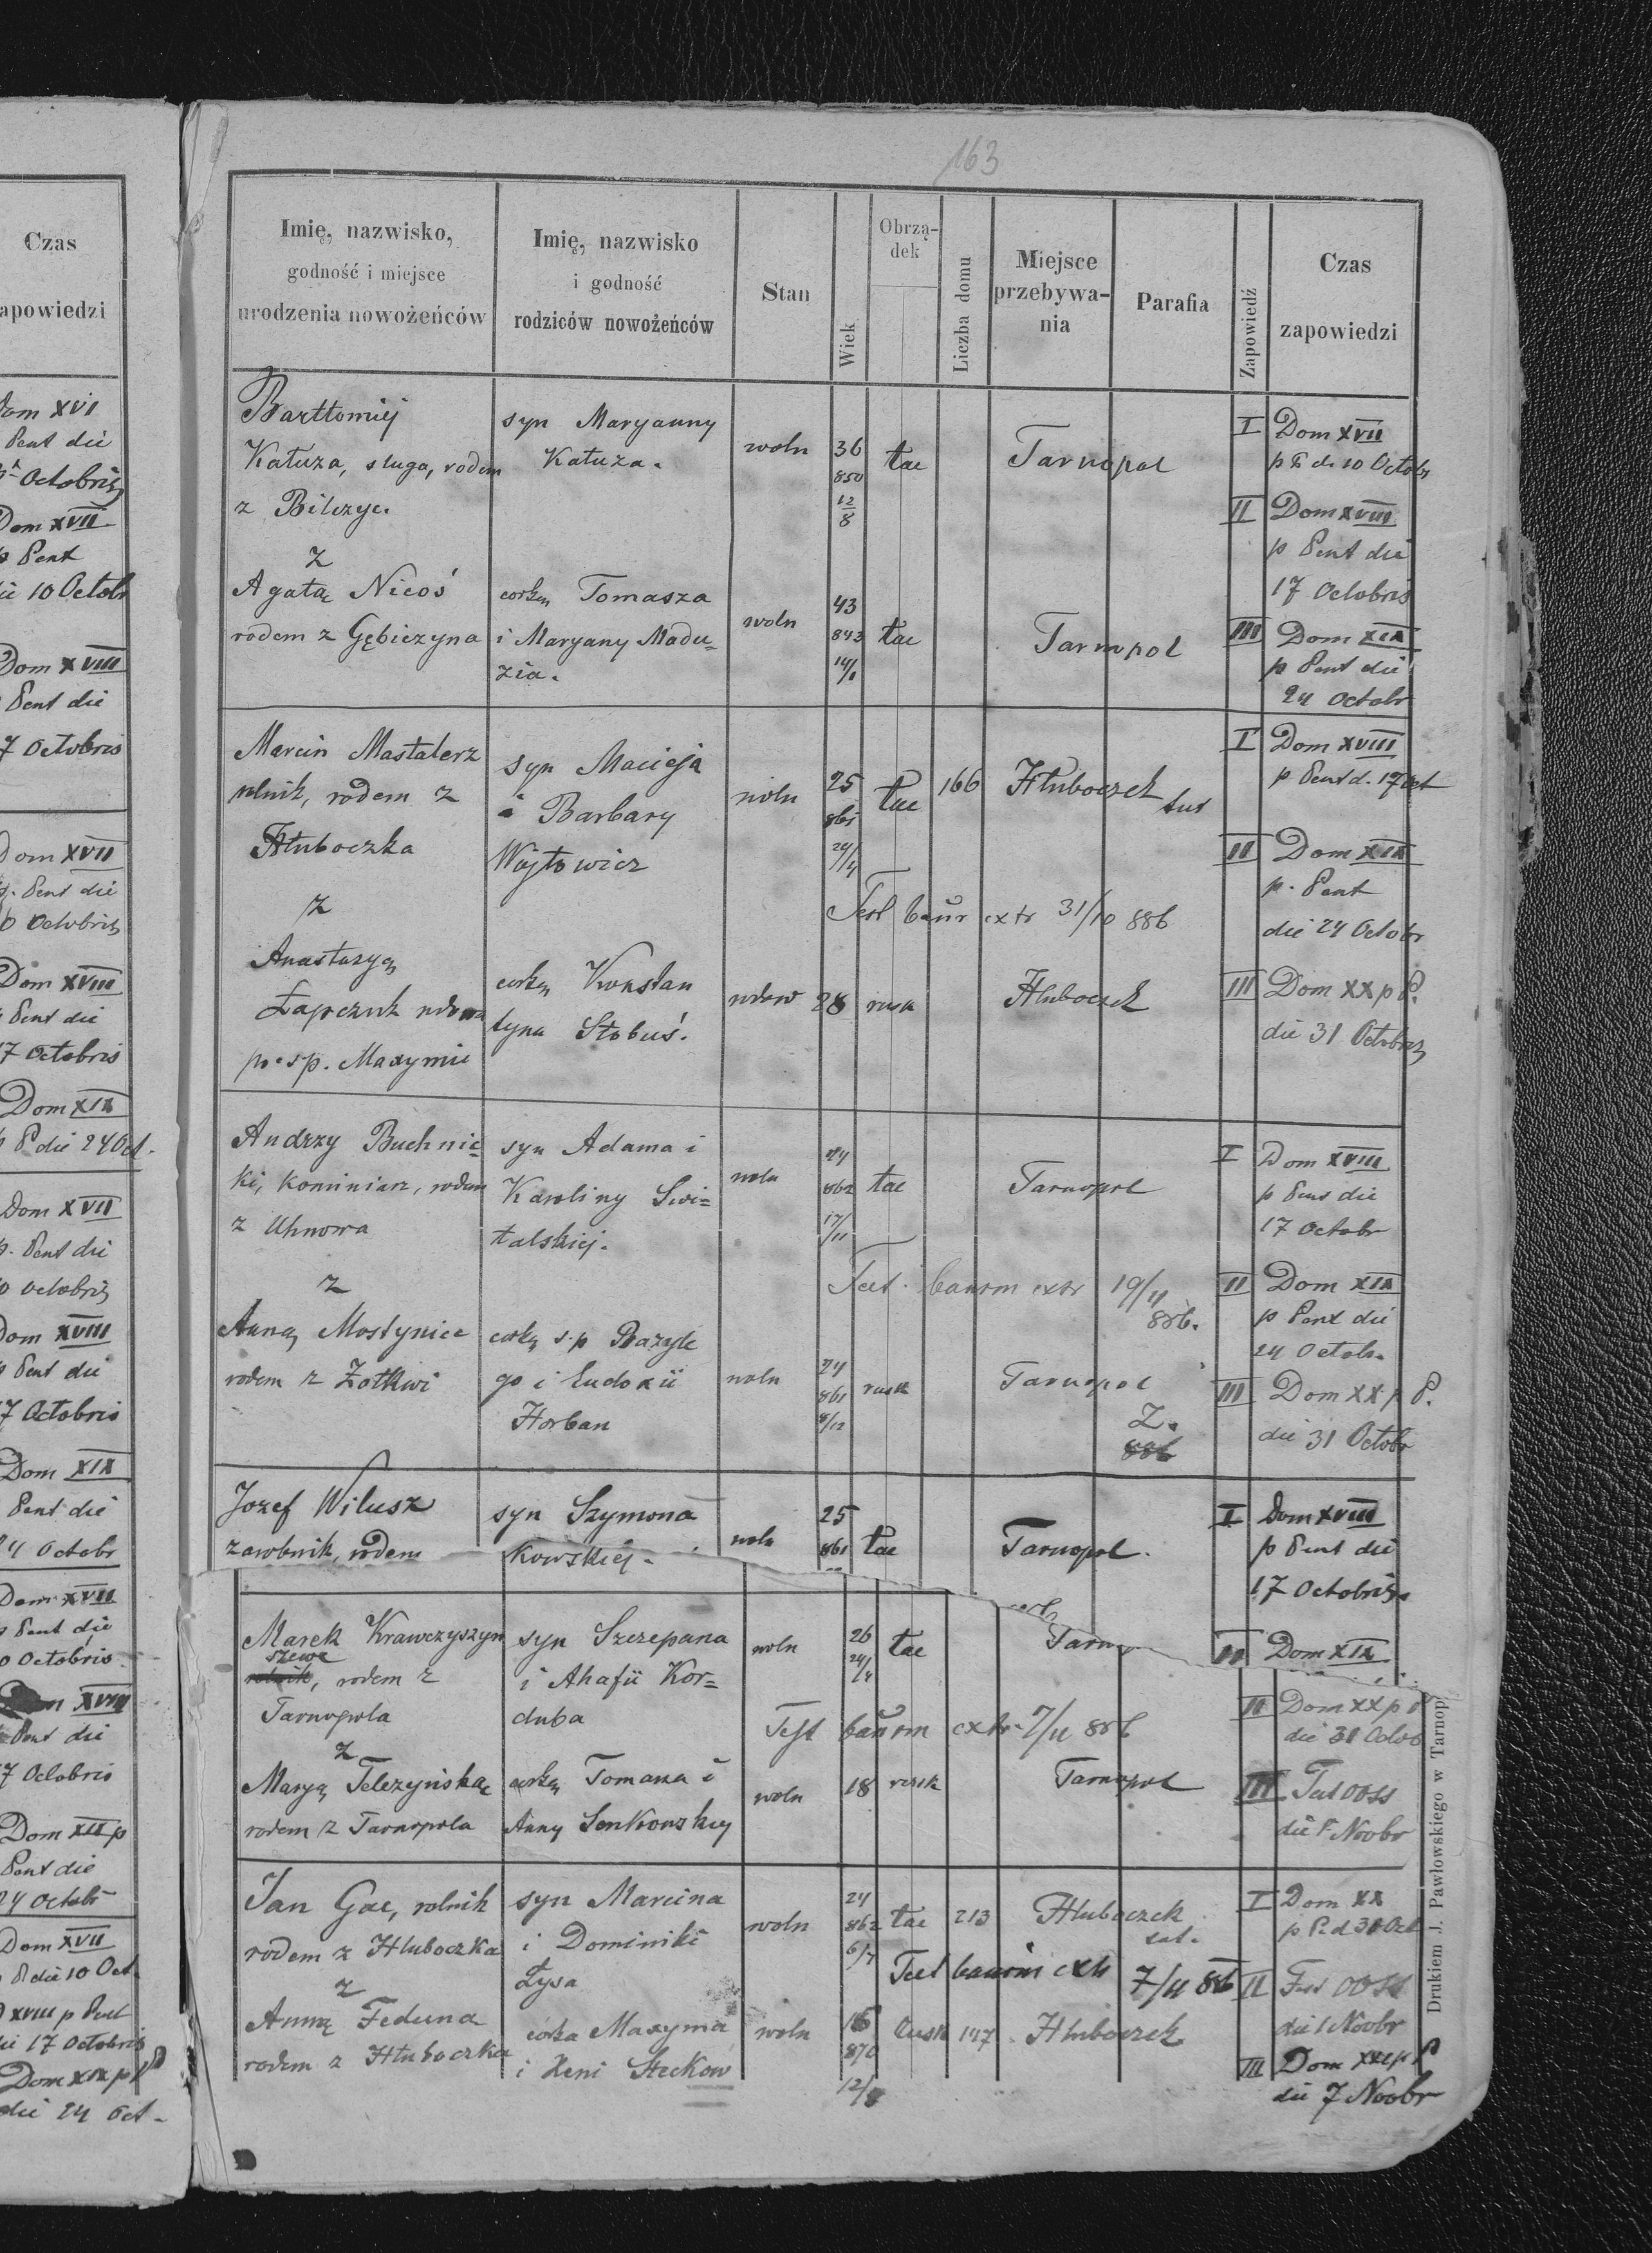 163
Czas
zapowiedzi
Dom XVI
Pent die
Octobris
Dom XVII
p Pent
die 10 Octobr
Dom XVIII
Pent die
17 Octobris
Dom XVII
p. Pent die
10 Octobris
Dom XVIII
Pent die
17 Octobris
Dom XIX
p P die 24 Oct.
Dom XVII
p. Pent die
10 Octobris
Dom XVIII
p Pent die
17 Octobris
Dom XIX
Pent die
24 Octobr
Dom XVII
p Pent die
10 Octobris
XVIII
Pent die
17 Octobris
Dom XIX p
Pent die
24 Octobr
Dom XVII
p P die 10 Oct.
XVIII p Pent
die 17 Octobris
Dom XIX p P
die 24 Oct.
Imię, nazwisko,
godność i miejsce
urodzenia nowożeńców
Imię, nazwisko
i godność
rodziców nowożeńców
Stan
Wiek
Obrzą-
dek
Liczba domu
Miejsce
przebywa-
nia
Parafia
Zapowiedź
Czas
zapowiedzi
Bartłomiej
Katuza, sługa, rodem
z Bilczyc.
z
Agatą Nicoś
rodem z Gębiczyna
syn Maryanny
Katuza.
corką Tomasza
i Maryany Madu=
zia.
woln 36 łac Tarnopol
850
12/8
woln 43 łac Tarnopol
843
14/1
I Dom XVII
p P. d. 10 Octobr
II Dom XVIII
p Pent die
17 Octobris
III Dom XIX
p Pent die
24 Octobr
Marcin Mastalerz
rolnik, rodem z
Hłuboczka
z
Anastazyą
Łapczuk wdowa
po s.p. Maxymie
syn Macieja
i Barbary
Wojtowicz
corką Konstan
tyna Stobuś.
woln 25 łac 166 Hłuboczek tut
861
24/4
Test bann extr 31/10 886
wdow 28 rusk Hłuboczek
I Dom XVIII
p Pent d. 17 oct
II Dom XIX
p. Pent
die 24 Octobr
III Dom XX p P.
die 31 Octobris
Andrzy Buchnic=
ki, kominiarz, rodem
z Uhnowa
z
Anną Mostynice
rodem z Żołkwi
syn Adama i
Karoliny Swi=
talskiej.
corką s.p Bazyle
go i Eudoxii
Horban
woln 24 łac Tarnopol
862
17/11
Test. bannm extr 19/11
886.
woln 24 rusk Tarnopol
861
8/12
Z.
886
I Dom XVIII
p Pent die
17 Octobr
II Dom XIX
p Pent die
24 Octobr
III Dom XX p P.
die 31 Octobr
Jozef Wilusz
zarobnik, rodem
syn Szymona
kowskiej.
woln 25 łac Tarnopol.
861
I Dom XVIII
p Pent die
17 Octobris
II Dom XIX
Marek Krawczyszyn
szewc
rolnik, rodem z
Tarnopola
z
Maryą Telczyńską
rodem z Tarnopola
syn Szczepana
i Ahafii Kor=
duba
corką Tomasza i
Anny Senkowskiej
woln 26 łac Tarn
24/4
Test bannm extr. 7/11 886
woln 18 rusk Tarnopol
II Dom XX p P
die 31 Octob
III Fest OOSS
die 1. Novbr
Jan Gac, rolnik
rodem z Hłuboczka
z
Anną Feduna
rodem z Hłuboczka
syn Marcina
i Dominiki
Łysa
corka Maxyma
i Xeni Steckow
woln 24 łac 213 Hłuboczek
862 lat.
6/7
Test bannm extr 7/11 886
woln 16 rusk 147 Hłuboczek
870
12/8
I Dom XX
p P. d 31 Oct
II Fest OOSS
die 1 Novbr
III Dom XXI p P
die 7 Novbr
Drukiem J. Pawłowskiego w Tarnop